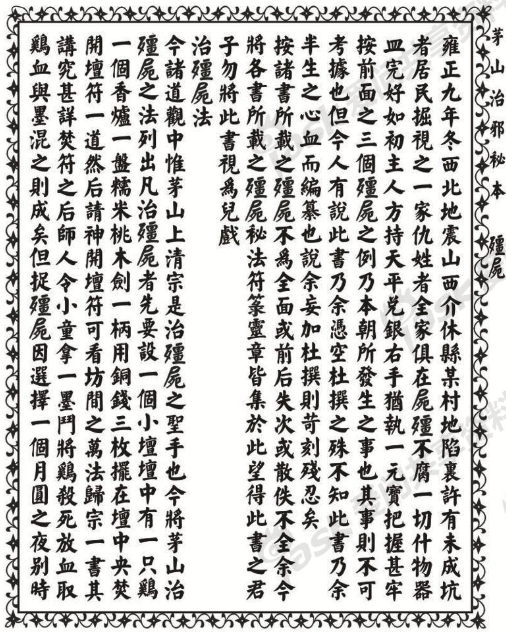 茅山治邪秘本　殭屍
雍正九年冬西北地震山西介休縣某村地陷裏許有未成坑
者居民掘視之一家仇姓者全家俱在屍殭不腐一切什物器
皿完好如初主人方持天平兑銀右手猶執一元寶把握甚牢
按前面之三個殭屍之例乃本朝所發生之事也其事則不可
考據也但今人有說此書乃余憑空杜撰之殊不知此書乃余
半生之心血而編纂也說余妄加杜撰則苛刻殘忍矣
按諸書所載之殭屍不為全面或前后失次或散佚不全余今
將各書所載之殭屍秘法符篆靈章皆集於此望得此書之君
子勿將此書視為兒戲
治殭屍法
今諸道觀中惟茅山上清宗是治殭屍之聖手也今將茅山治
殭屍之法列出凡治殭屍者先要設一個小壇壇中有一只鷄
一個香爐一盤糯米桃木劍一柄用銅錢三枚擺在壇中央焚
開壇符一道然后請神開壇符可看坊間之萬法歸宗一書其
講究甚詳焚符之后師人令小童拿一墨鬥將鷄殺死放血取
鷄血與墨混之則成矣但捉殭屍因選擇一個月圓之夜別時